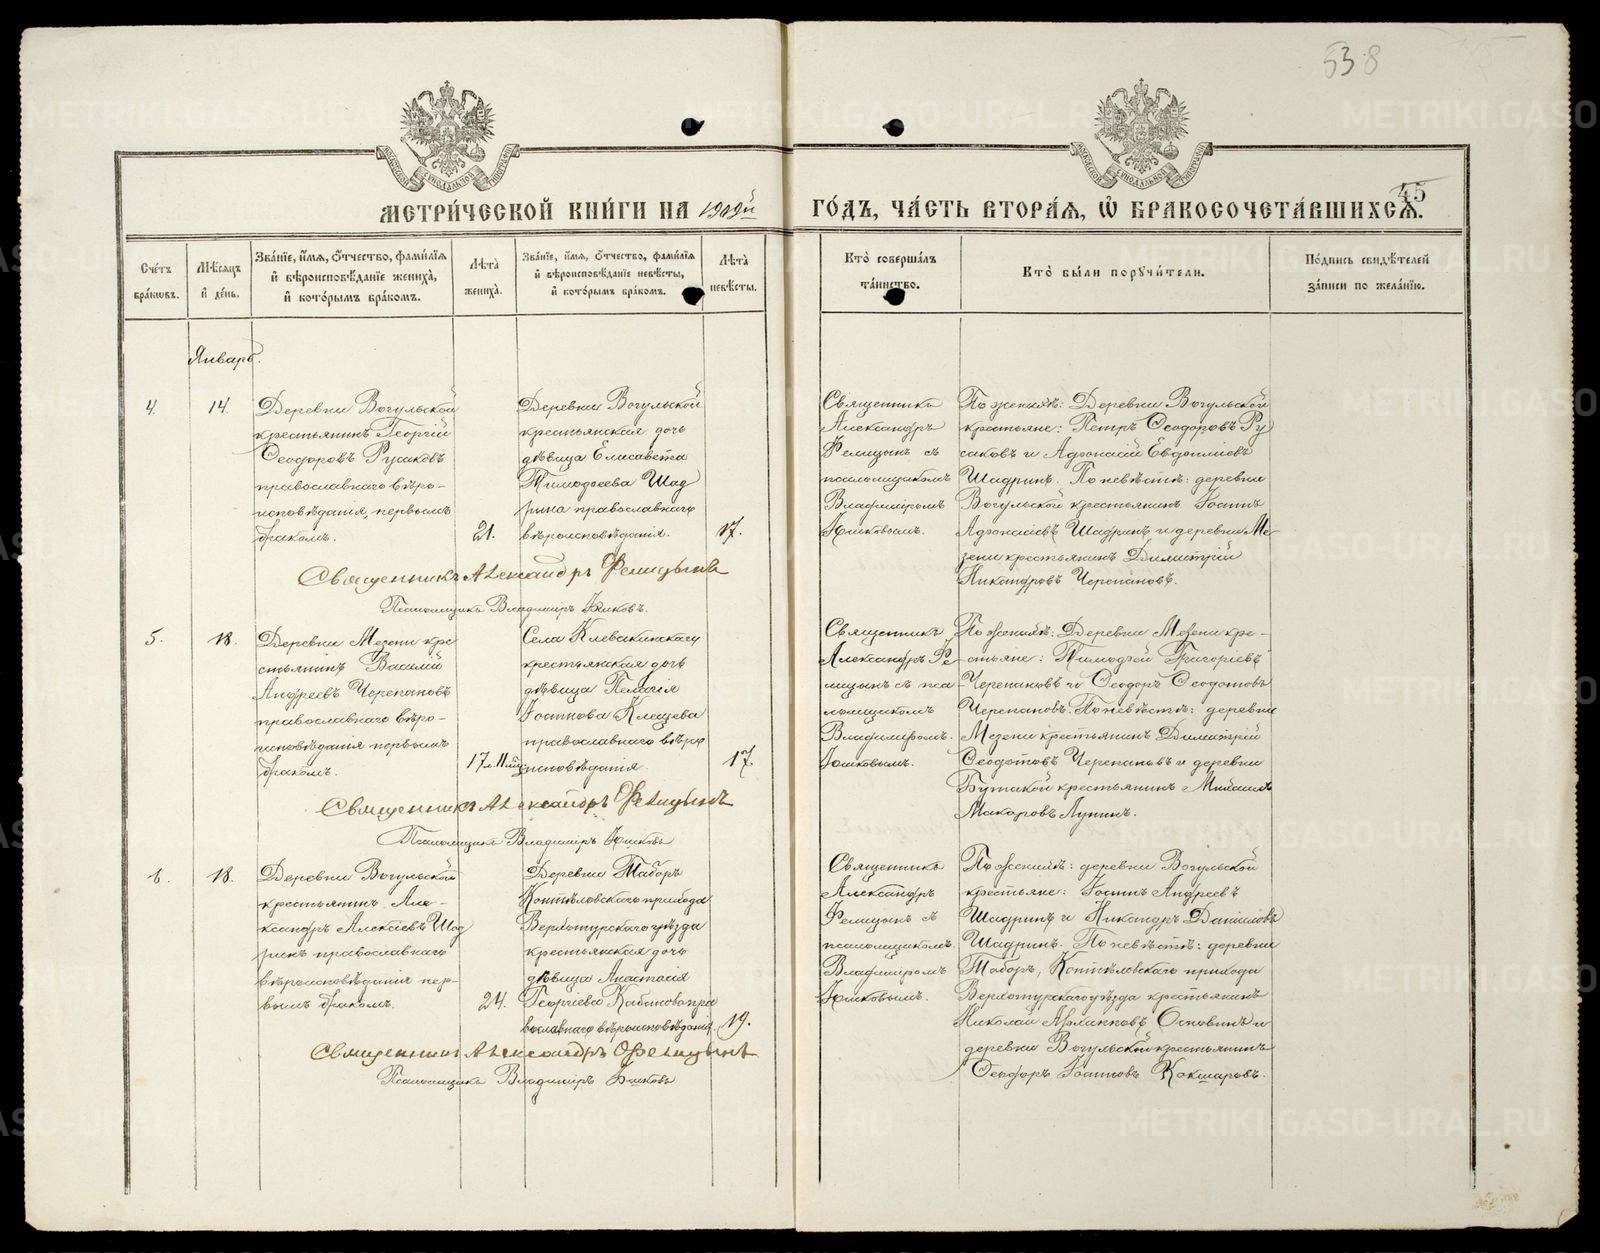 538
45
МЕТРИ́ЧЕСКОЙ КНИ́ГИ НА 1909й ГО́ДЪ, ЧА́СТЬ ВТОРА́Я, Ѡ БРАКОСОЧЕТА́ВШИХСЯ.
Сче́тъ бра́кѡвъ.
Мѣ́сяцъ и де́нь.
Зва́нїе, и́мя, о́тчество, фами́лїя и вѣроисповѣ́данїе жениха́, и кото́рымъ бра́комъ.
Лѣ́та жениха́.
Зва́нїе, и́мя, о́тчество, фами́лїя и вѣроисповѣ́данїе невѣ́сты, и кото́рымъ бра́комъ.
Лѣ́та невѣ́сты.
Кто̀ соверша́лъ та́инство.
Кто̀ бы́ли поручи́тели.
По́дпись свидѣ́телей за́писи по жела́нїю.
Январь.
4.
14.
Деревни Вогульской
крестьянинъ Георгій
Ѳеодоровъ Русаковъ
православнаго вѣро-
исповѣданія, первымъ
бракомъ.
21.
Деревни Вогульской
крестьянская дочь
дѣвица Елисавета
Тимоѳеева Шад
рина православнаго
вѣроисповѣданія.
17.
Священникъ
Александръ
Фелицынъ съ
псаломщикомъ
Владиміромъ
Юшковымъ.
По женихѣ: Деревни Вогульской
крестьяне: Петръ Ѳеодоровъ Ру
саковъ и Аѳонасій Евдокимовъ
Шадринъ. По невѣстѣ: деревни
Вогульской крестьянинъ Іоаннъ
Аѳонасіевъ Шадринъ и деревни Ме-
зени крестьянинъ Димитрій
Никандровъ Черепановъ.
Священникъ Александръ Фелицынъ
Псаломщикъ Владиміръ Юшковъ.
5.
18.
Деревни Мезени кре
стьянинъ Василій
Андреевъ Черепановъ
православнаго вѣро-
исповѣданія первымъ
бракомъ.
17 л. 11 мц.
Села Клевакинскаго
крестьянская дочь
дѣвица Пелагія
Іоаннова Клещева
православнаго вѣро
исповѣданія.
17.
Священникъ
Александръ Фе-
лицынъ съ пса-
ломщикомъ
Владиміромъ
Юшковымъ.
По женихѣ: Деревни Мезени кре-
стьяне: Тимоѳей Григоріевъ
Черепановъ и Ѳеодоръ Ѳеодотовъ
Черепановъ. По невѣстѣ: деревни
Мезени крестьянинъ Димитрій
Ѳеодотовъ Черепановъ и деревни
Бутакой крестьянинъ Михаилъ
Макаровъ Лунинъ.
Священникъ Александръ Фелицынъ
Псаломщикъ Владиміръ Юшковъ
6.
18.
Деревни Вогульской
крестьянинъ Але-
ксандръ Алексіевъ Шад
ринъ православнаго
вѣроисповѣданія пер-
вымъ бракомъ.
24.
Деревни Таборъ
Коптѣловскаго прихода
Верхотурскаго уѣзда
крестьянская дочь
дѣвица Анастасія
Георгіева Кабанова пра
вославнаго вѣроисповѣданія.
19.
Священникъ
Александръ
Фелицынъ съ
псаломщикомъ
Владиміромъ
Юшковымъ.
По женихѣ: деревни Вогульской
крестьяне: Іоаннъ Андреевъ
Шадринъ и Никандръ Даниловъ
Шадринъ. По невѣстѣ: деревни
Таборъ, Коптѣловскаго прихода
Верхотурскаго уѣзда крестьянинъ
Николай Осповинъ и
деревни Вогульской крестьянинъ
Ѳеодоръ Іоанновъ Кокшаровъ.
Священникъ Александръ Фелицынъ
Псаломщикъ Владиміръ Юшковъ
METRIKI.GASO-URAL.RU